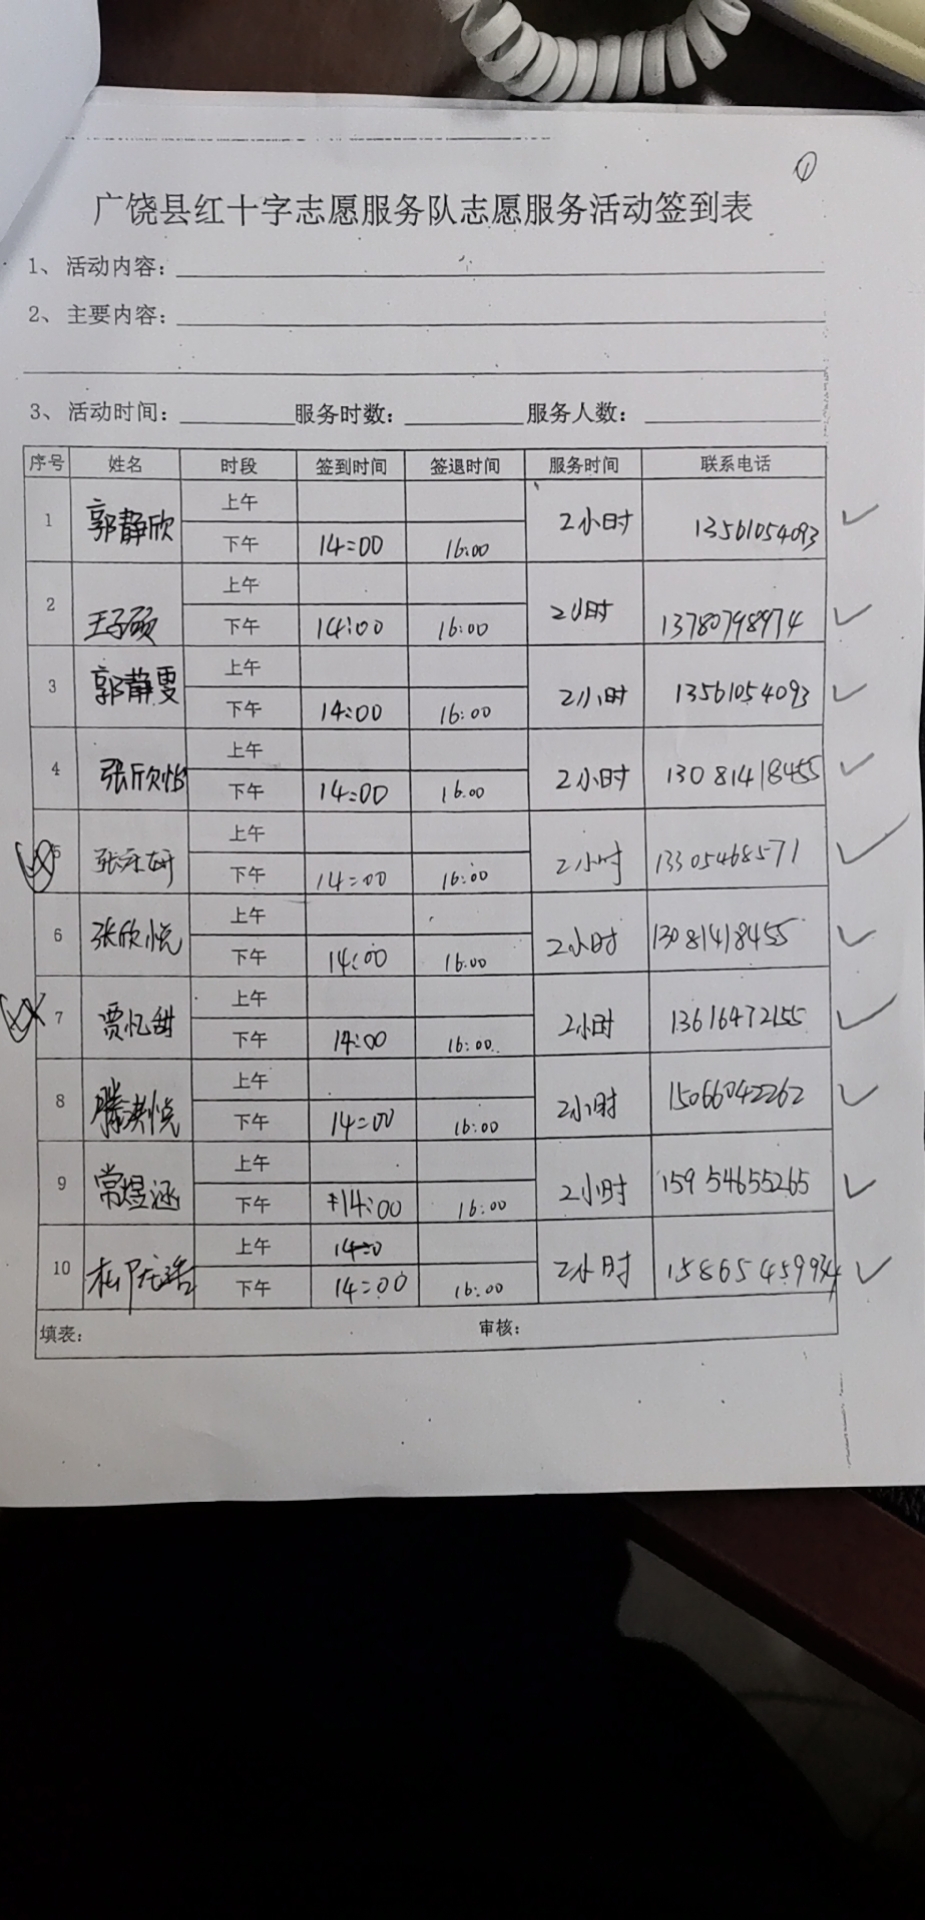 ①
广饶县红十字志愿服务队志愿服务活动签到表
1、活动内容：
2、主要内容：
3、活动时间： 服务时数： 服务人数：
序号 姓名 时段 签到时间 签退时间 服务时间 联系电话
1 郭静欣 上午 2小时 13561054093
下午 14:00 16:00
2 王子硕 上午 2小时 13780798974
下午 14:00 16:00
3 郭静雯 上午 2小时 13561054093
下午 14:00 16:00
4 张欣怡 上午 2小时 13081418455
下午 14:00 16:00
5 上午 2小时 13305468571
下午 14:00 16:00
6 张欣悦 上午 2小时 13081418455
下午 14:00 16:00
7 贾忆甜 上午 2小时 13616472155
下午 14:00 16:00
8 滕淇悦 上午 2小时 15066042262
下午 14:00 16:00
9 常煜涵 上午 2小时 15954655265
下午 14:00 16:00
10 上午 2小时
下午 14:00 16:00
填表： 审核：